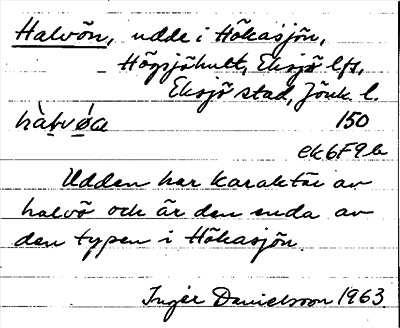 Halvön, udde i Hökasjön,
Högsjöhult, Eksjö lfs,
Eksjö stad, Jönk. l.
hàlvǿa 150
ek6F9b
Udden har karaktär av
halvö och är den enda av
den typen i Hökasjön.
Inger Danielsson 1963